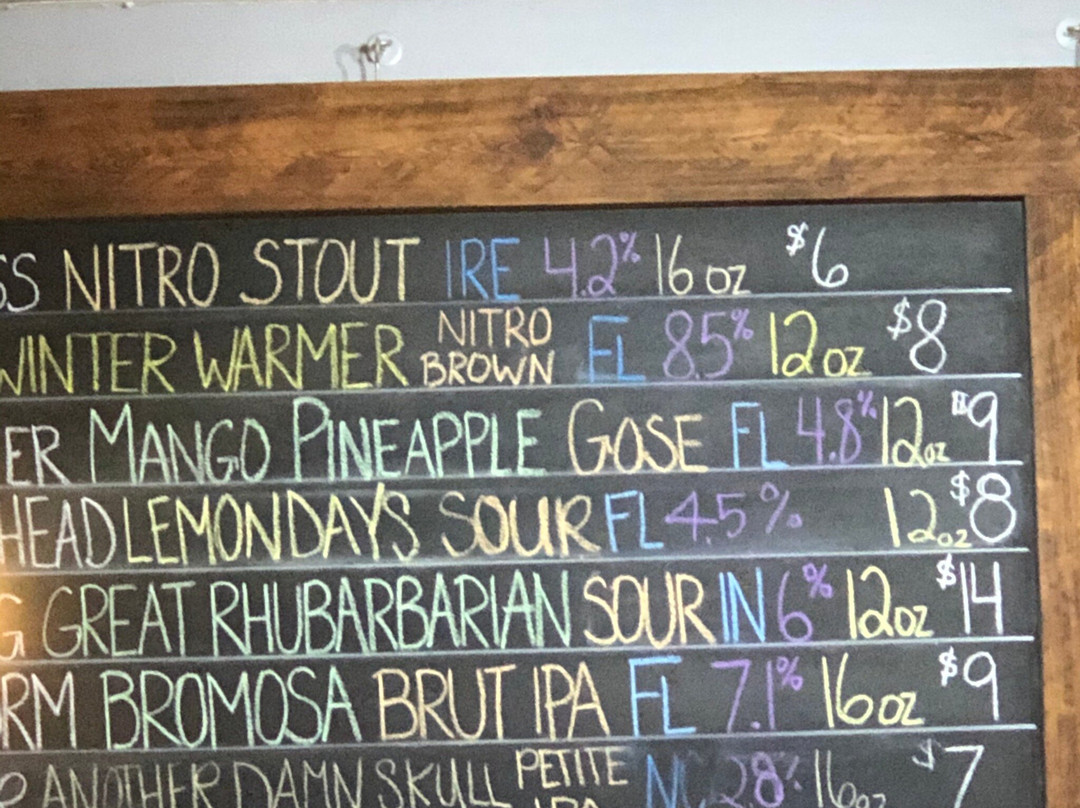 SS NITRO STOUT IRE 4.2% 16 oz $6
WINTER WARMER NITRO BROWN FL 8.5% 12 oz $8
ER MANGO PINEAPPLE GOSE FL 4.8% 12 oz $9
HEAD LEMONDAYS SOUR FL 4.5% 12 oz $8
G GREAT RHUBARBARIAN SOUR IN 6% 12 oz $14
RM BROMOSA BRUT IPA FL 7.1% 16 oz $9
ANOTHER DAMN SKULL PETITE IPA NC 2.8% 16 oz $7